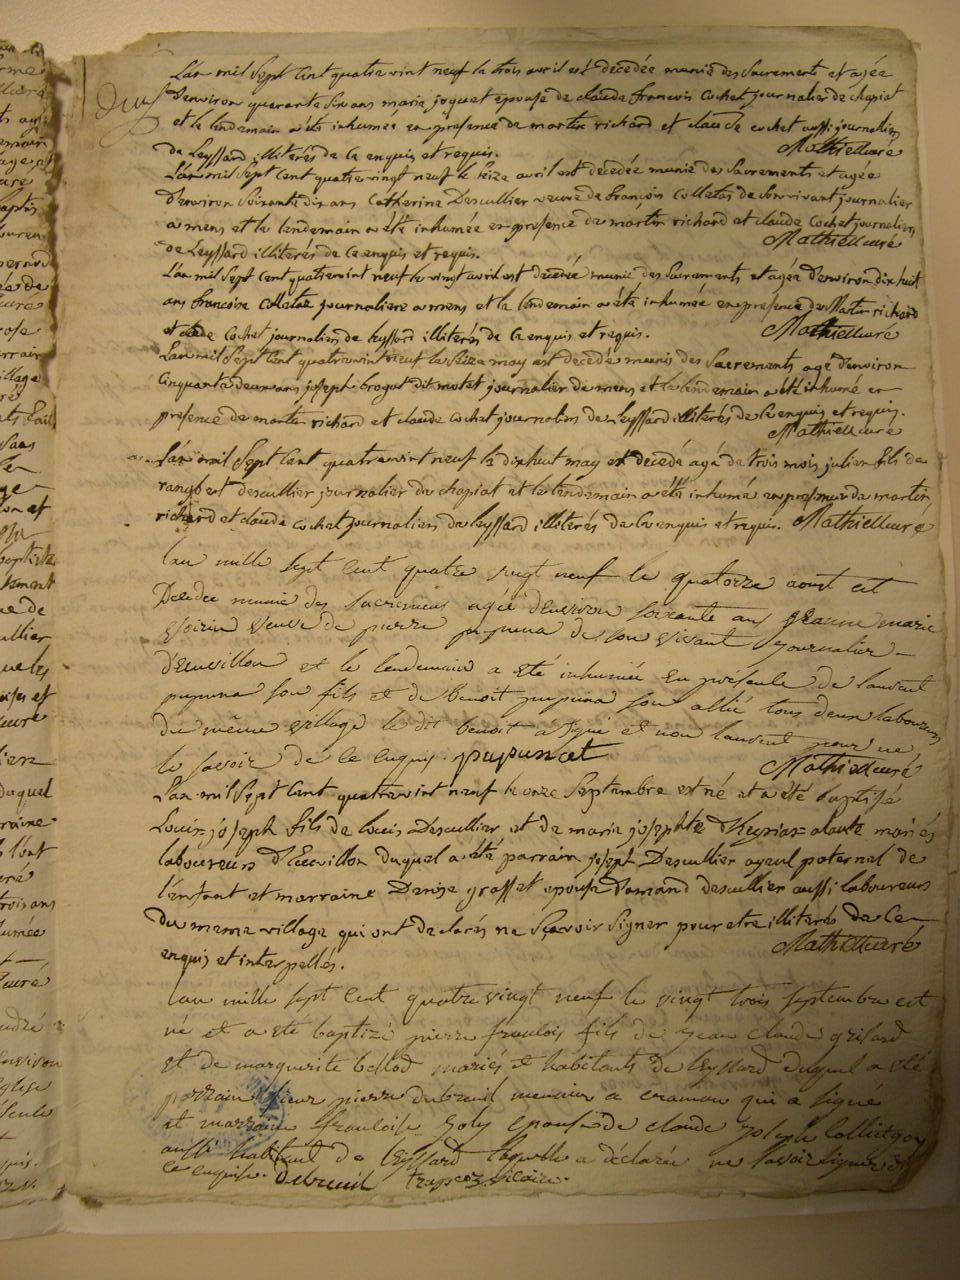 L'an mil sept cent quatre vint neuf le trois avril est decedée munie des Sacrements et agée
D'environ quarante six ans marie joquet epouse de claude francois cochet journalier de chapiat
et le lendemain a été inhumée en presence de martin richard et claude cochet aussi journaliers
de Leyssard illiterés de ce enquis et requis. Mathieu curé
L'an mil sept cent quatre vingt neuf le seize avril est décedée munie des Sacrements et agée
D'environ Soixante dix ans Catherine Descullier veuve de françois Colletaz de Son vivant journalier
a mens et le lendemain a été inhumée en presence de martin richard et claude Cochet journaliers
de Leyssard illiterés de ce enquis et requis. Mathieu curé
L'an mil Sept Cent quatre vint neuf le vingt avril est décédée munie des Sacrements et agée D'environ dix huit
ans francoise Colletaz journaliere a mens et le lendemain a été inhumée en presence de Martin richard
et claude cochet journaliers de leyssard illiterés de ce enquis et requis. Mathieu curé
L'an mil Sept Cent quatre vint neuf le Seize may est decedé munis des Sacrements agé D'environ
Cinquante deux ans joseph brogat dit motet journalier de mens et le lendemain a été inhumé en
presence de martin richard et claude cochet journaliers de Leyssard illiterés de ce enquis et requis.
Mathieu curé
L'an mil Sept Cent quatre vint neuf le dixhuit may est decédé agé de trois mois julien fils de
rambert descullier journalier de chapiat et le lendemain a été inhumé en presence de martin
richard et claude cochet journaliers de leyssard illiterés de ce enquis et requis. Mathieu curé
lan mille sept cent quatre vingt neuf le quatorze aoust est
Decedee munie des sacremens agée d'environ soixante ans jeanne marie
veuve de pierre pupuna de son vivant journalier
et le lendemain a eté inhumée en presence de laurent
pupuna son fils et de benoit pupuna son allié tous deux laboureurs
du même village le dit benoit a signé et non laurent pour ne
le savoir de ce enquis. pupunat
Mathieu curé
L'an mil Sept Cent quatre vint neuf le onze Septembre est né et a été baptisé
Louis joseph fils de louis Descullier et de marie josephte mariés
laboureurs D'Ecuvillon duquel a été parrain joseph Descullier ayeul paternel de
l'enfant et marraine Denise grosset epouse D'amand descullier aussi laboureurs
du meme village qui ont declarés ne Sçavoir Signer pour etre illiterés de ce
enquis et interpellés. Mathieu curé
lan mille sept cent quatre vingt neuf le vingt trois septembre est
né et a ete baptizé pierre francois fils de jean claude grisard
et de marguerite bellod mariés et habitants de leyssard duquel a eté
parrain sieur pierre dubreuil meunier a cramans qui a signé
et marraine francoise joly epouse de claude joseph
aussi habitant de leyssard laquelle a déclarée ne savoir signer de
ce enquise. Dubreuil vicaire.